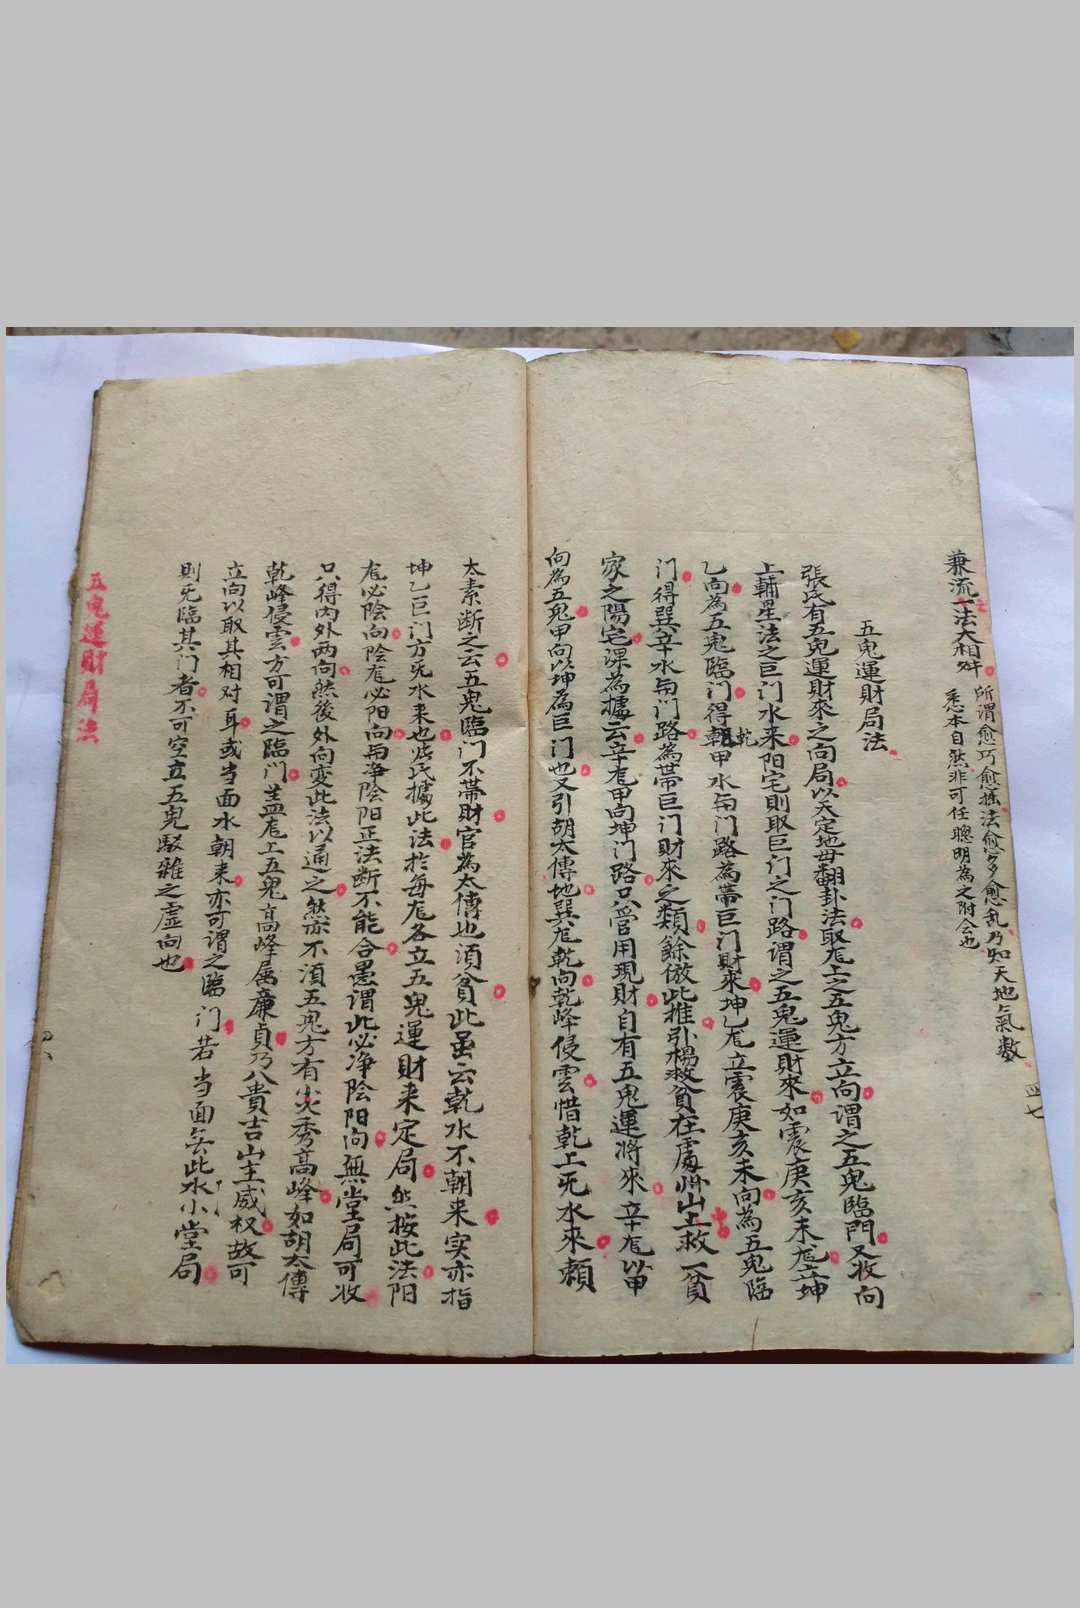 兼流一法大相舛
所謂愈巧愈拙法愈多愈乱乃知天地氣数
悉本自然非可任聰明為之附会也
四七
五鬼運財局法
張氏有五鬼運財來之向局以天定地母翻卦法取龙上之五鬼方立向谓之五鬼臨門又收向
上輔星法之巨门水来阳宅則取巨门之门路谓之五鬼運財來如震庚亥未龙立坤
乙向為五鬼臨门得乾甲水與门路為帯巨门財來坤乙龙立震庚亥未向為五鬼臨
门得巽辛水與门路為帯巨门財來之類餘倣此推引楊救貧在處州山上救一貧
家之陽宅課為據云辛龙甲向坤门路只管用現財自有五鬼運將來立辛龙以甲
向為五鬼甲向以坤為巨门也又引胡太傅地巽龙乾向乾峰侵雲惜乾上旡水來賴
太素断之云五鬼臨门不帯財官為太傅也須貧此虽云乾水不朝来实亦指
坤乙巨门方旡水来也張氏據此法於每龙各立五鬼運財来定局然按此法阳
龙必陰向陰龙必阳向與净陰阳正法断不能合愚谓此必净陰阳向無堂局可收
只得内外两向然後外向变此法以通之然亦不須五鬼方有尖秀高峰如胡太傅
乾峰侵雲方可谓之臨门盖龙上五鬼高峰属廉貞乃八贵吉山主威权故可
立向以取其相对耳或当面水朝来亦可谓之臨门若当面無此水小堂局
則旡臨其门者不可空立五鬼駁雜之虚向也
五鬼運財局法